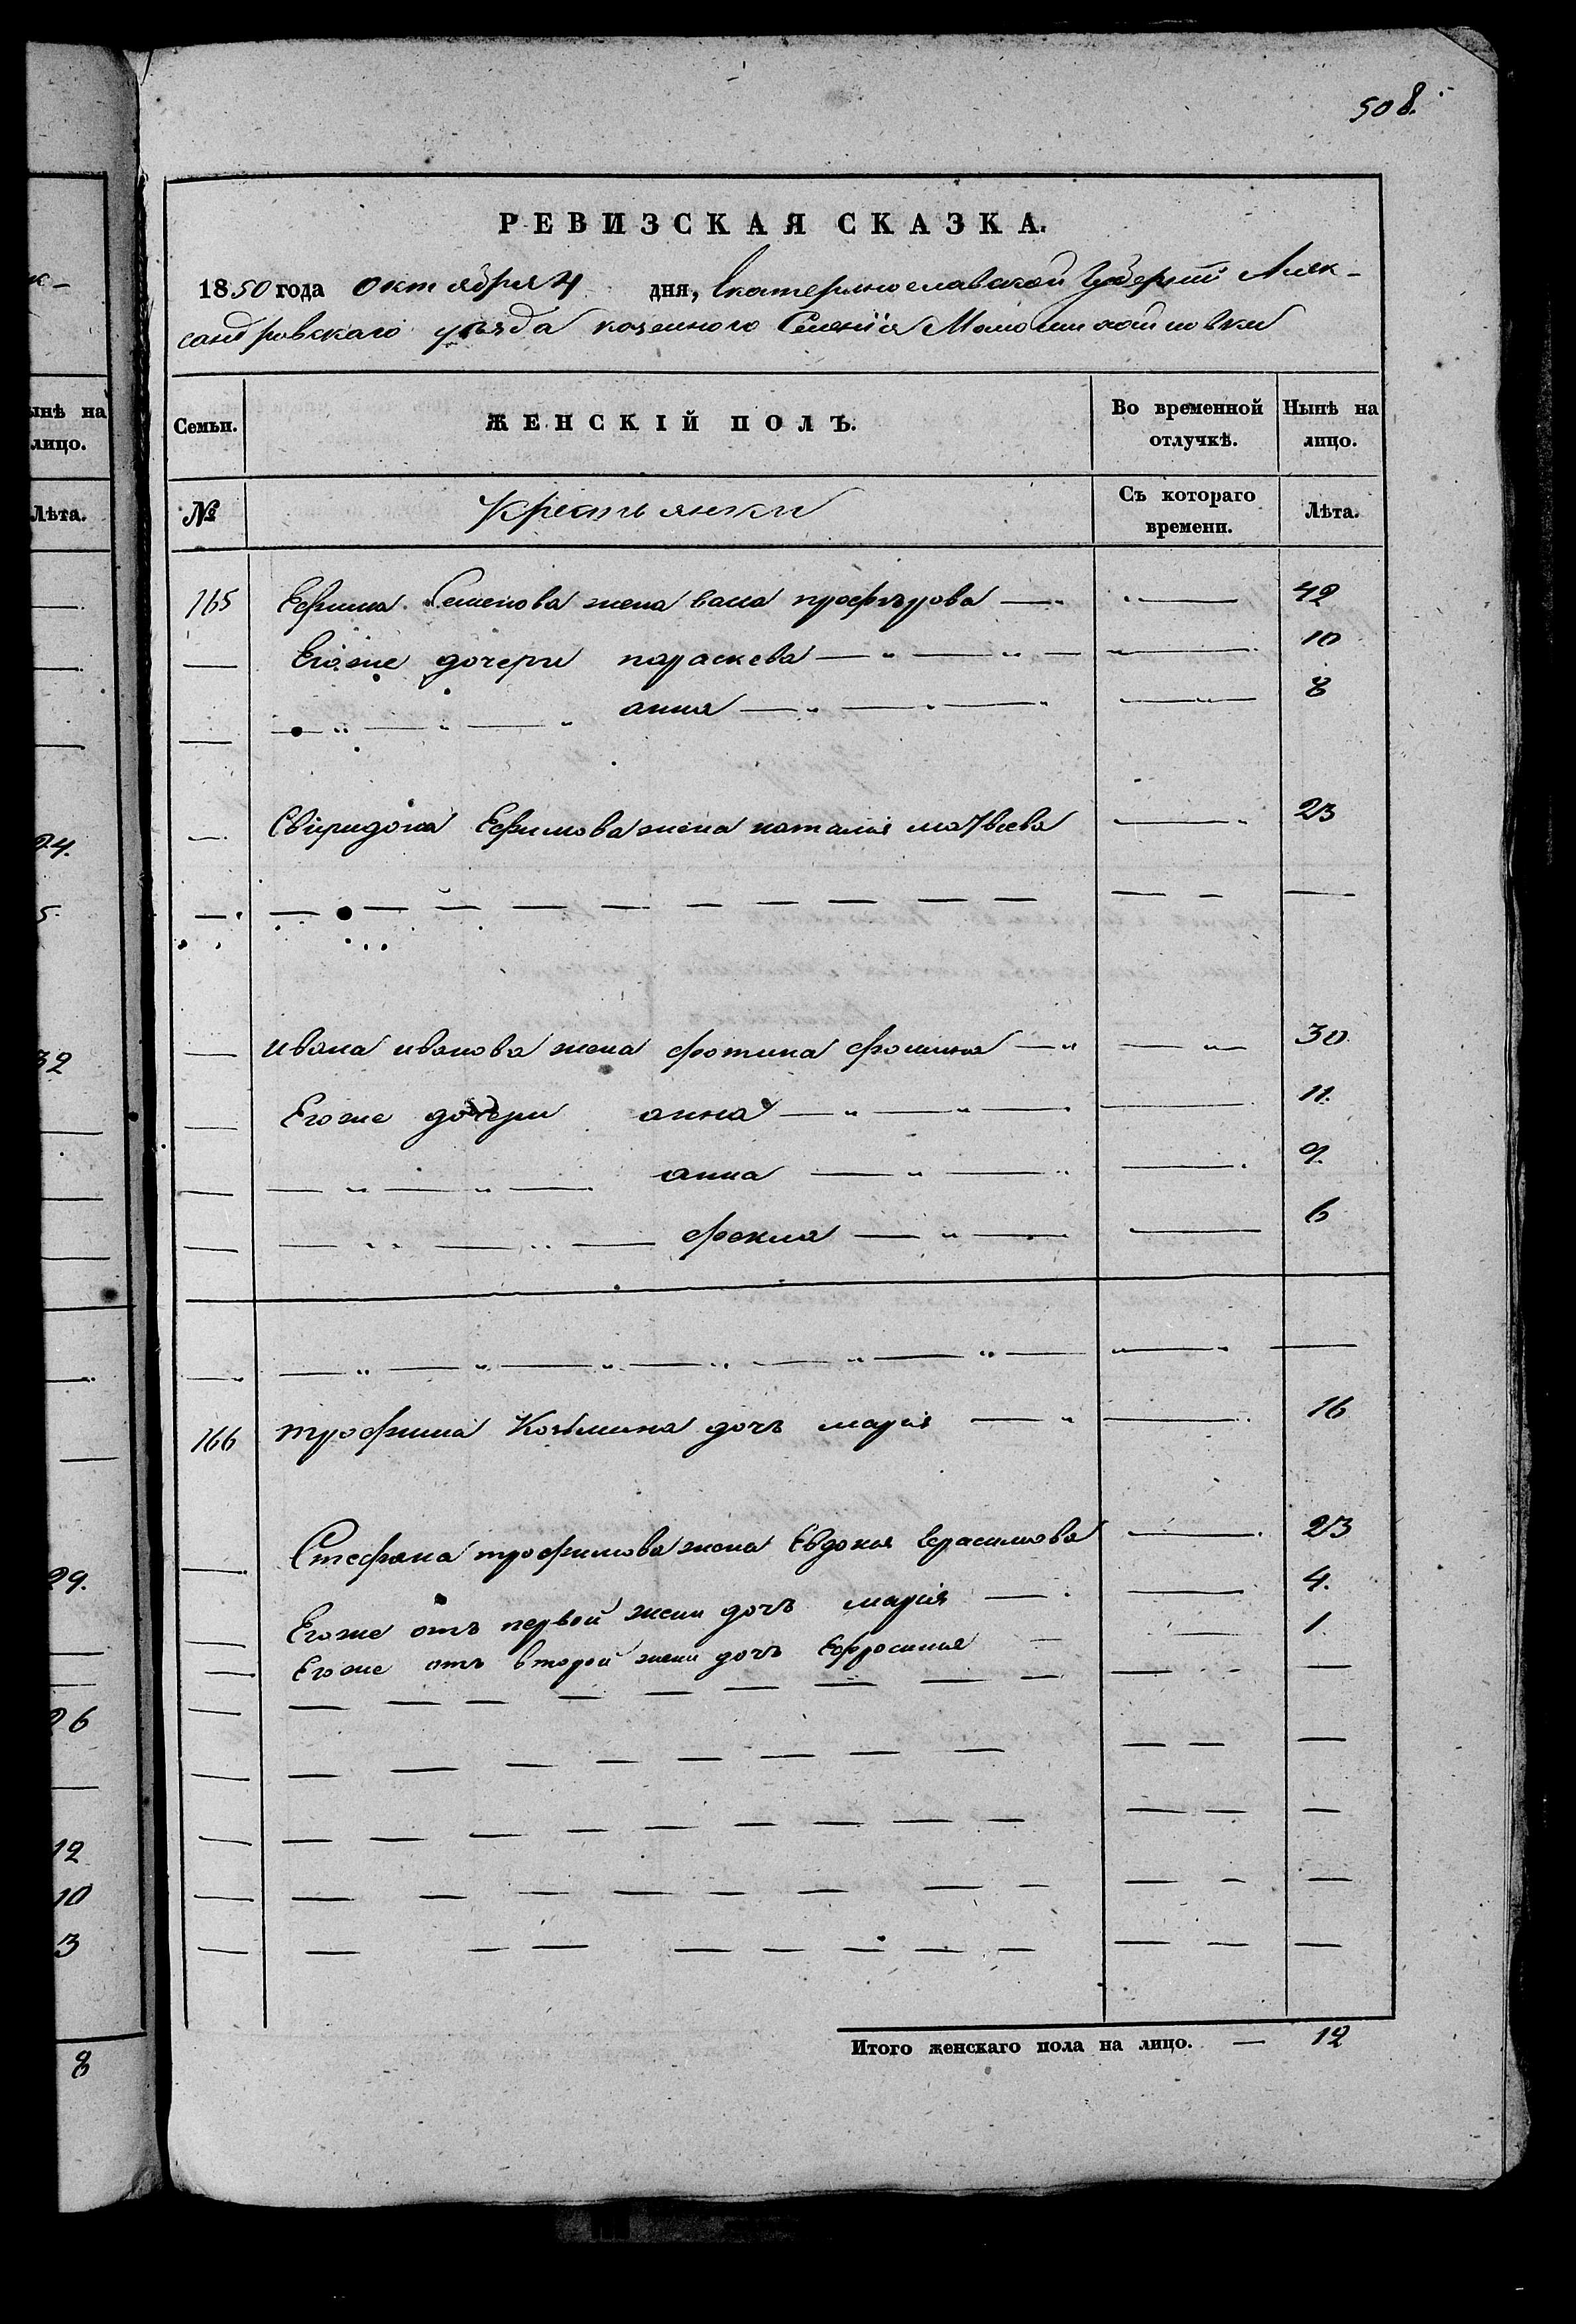 508.
РЕВИЗСКАЯ СКАЗКА.
1850 года октября 4 дня, Екатеринославской Губерніи Алек-
сандровскаго уѣзда казенного Селенія
Семьи. ЖЕНСКІЙ ПОЛЪ. Во временной отлучкѣ. Нынѣ на лицо.
№ Крестьянки Съ котораго времени. Лѣта.
165 Ефима Семенова жена — 42
— Егоже дочери параскева — 10
— анна — 8
— Свиридона Ефимова жена наталія матвеева — 23
— ивана иванова жена фотина фомина — 30
— Егоже дочери анна — 11.
— анна — 9.
— фекла — 6
166 трофима Козьмина дочъ марія — 16
— Стефана трофимова жена Евдокия Герасимова — 23
— Егоже отъ первой жени дочъ марія — 4.
— Егоже отъ второй жени дочъ Ефросиния — 1.
Итого женскаго пола на лицо. — 12
ынѣ на
лицо.
Лѣта.
24.
5.
32
29.
26
12
10
3
8